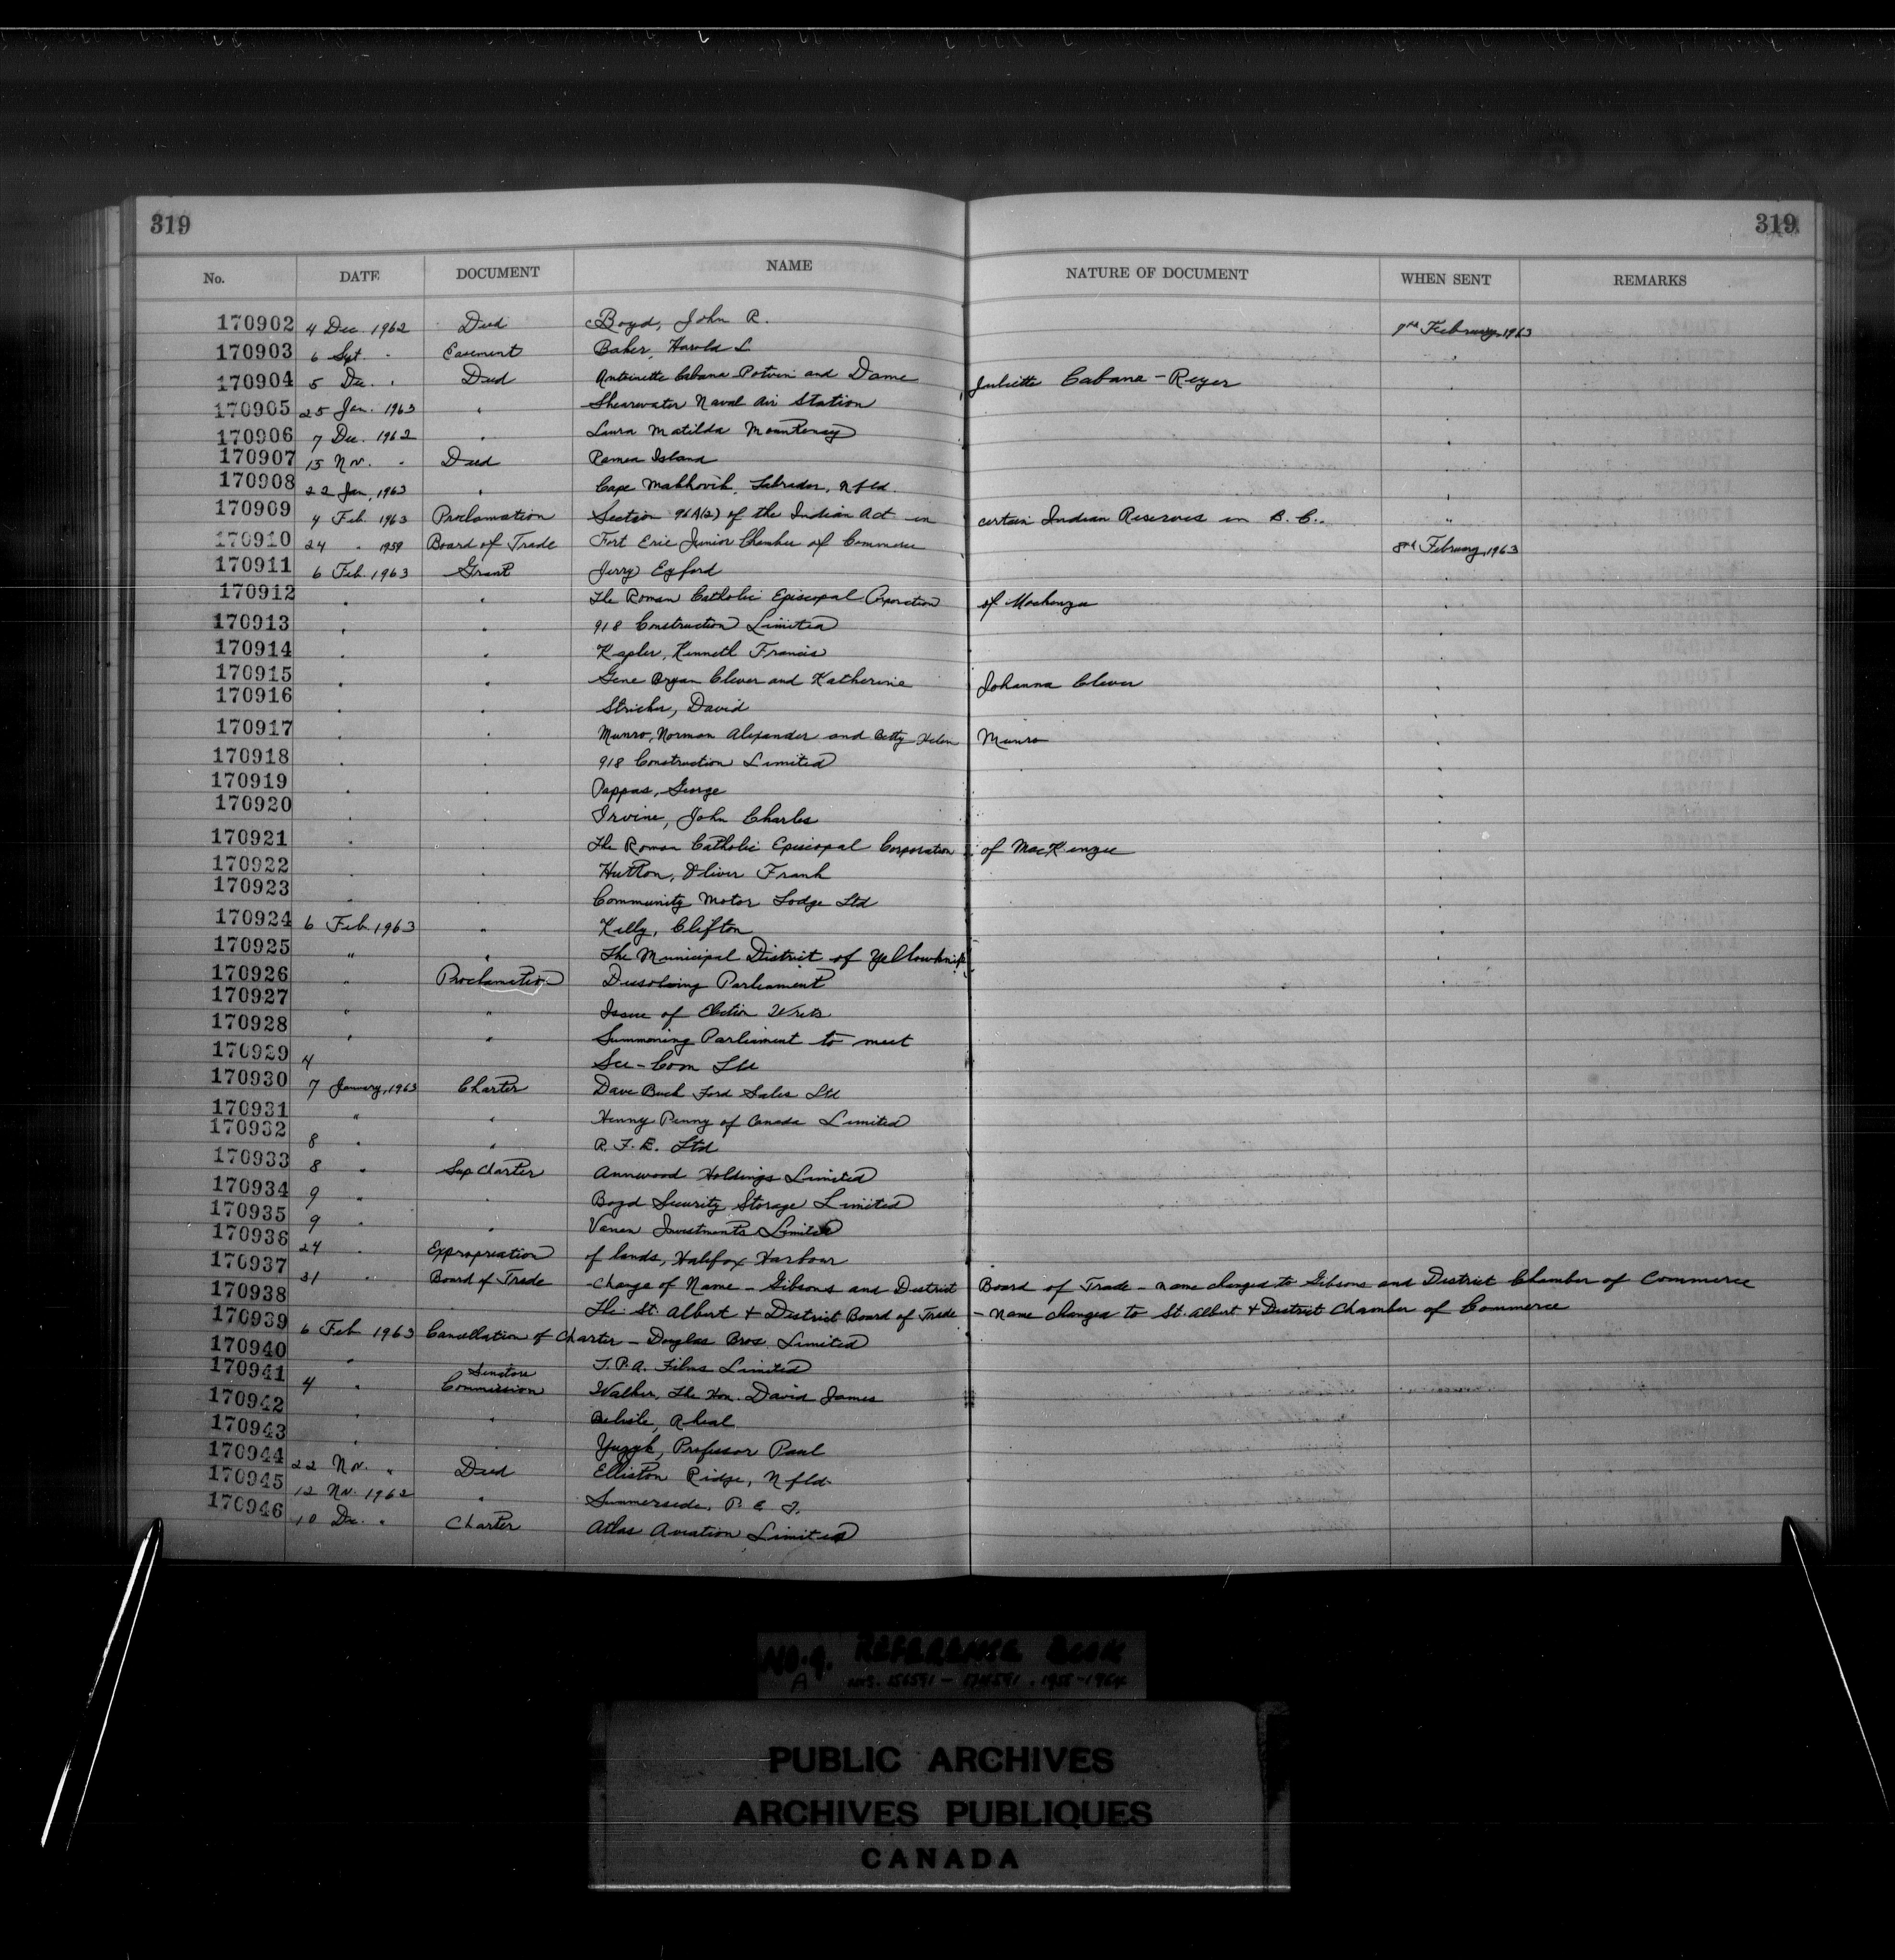 319 319
No. DATE DOCUMENT NAME NATURE OF DOCUMENT WHEN SENT REMARKS
170902 4 Dec. 1962 Deed Boyd, John R. February, 1963
170903 6 Sept. " Easement Baker, Harold L. "
170904 5 Dec. " Deed Antoinette Cabana Potvin and Dame Juliette Cabana - Reyer "
170905 25 Jan. 1963 " Shearwater Naval Air Station "
170906 7 Dec. 1962 " Laura Matilda Mountenay "
170907 15 Nov. " Deed Ramea Island "
170908 22 Jan, 1963 " Cape Makkovik, Labrador, Nfld. "
170909 4 Feb 1963 Proclamation Section 96A(2) of the Indian Act in certain Indian Reserves in B.C. "
170910 24 " 1959 Board of Trade Fort Erie Junior Chamber of Commerce February, 1963
170911 6 Feb. 1963 Grant Jerry Eyford "
170912 " " The Roman Catholic Episcopal Corporation of "
170913 " " 918 Construction Limited "
170914 " " Kapler, Kenneth Francis "
170915 " " Gene Bryan Clever and Katherine Johanna Clever "
170916 " " Stricker, David "
170917 " " Munro, Norman Alexander and Betty Helen Munro "
170918 " " 918 Construction Limited "
170919 " " Pappas, George "
170920 " " Irvine, John Charles "
170921 " " The Roman Catholic Episcopal Corporation of MacKenzie "
170922 " " Hutton, Oliver Frank "
170923 " " Community Motor Lodge Ltd "
170924 6 Feb. 1963 " Kelly, Clifton "
170925 " " The Municipal District of Yellowknife "
170926 " Proclamation Dissolving Parliament "
170927 " " Issue of Election Writs
170928 " " Summoning Parliament to meet
170929 4 Ltd
170930 7 January, 1963 Charter Dave Buck Ford Sales Ltd
170931 " " Henny Penny of Canada Limited
170932 8 " " R. F. E. Ltd
170933 8 " Sup Charter Annwood Holdings Limited
170934 9 " " Boyd Security Storage Limited
170935 9 " " Investments Limited
170936 24 " Expropriation of lands, Halifax Harbour
170937 31 " Board of Trade - Change of Name - Gibsons and District Board of Trade - name changed to Gibsons and District Chamber of Commerce
170938 " The St. Albert & District Board of Trade - name changed to St. Albert & District Chamber of Commerce
170939 6 Feb 1963 Cancellation of Charter - Douglas Bros. Limited
170940 " T.P.A. Films Limited
170941 4 " Senators Commission Walker, The Hon. David James
170942 " " Belisle, Rheal
170943 " " Yuzyk, Professor Paul
170944 22 Nov. " Deed Elliston Ridge, Nfld.
170945 12 Nov. 1962 " Summerside, P. E. I.
170946 10 Dec. " Charter Atlas Aviation Limited
NO. 9. REFERENCE BOOK
A NOS. 156591 - 174591 . 1955-1964
PUBLIC ARCHIVES
ARCHIVES PUBLIQUES
CANADA